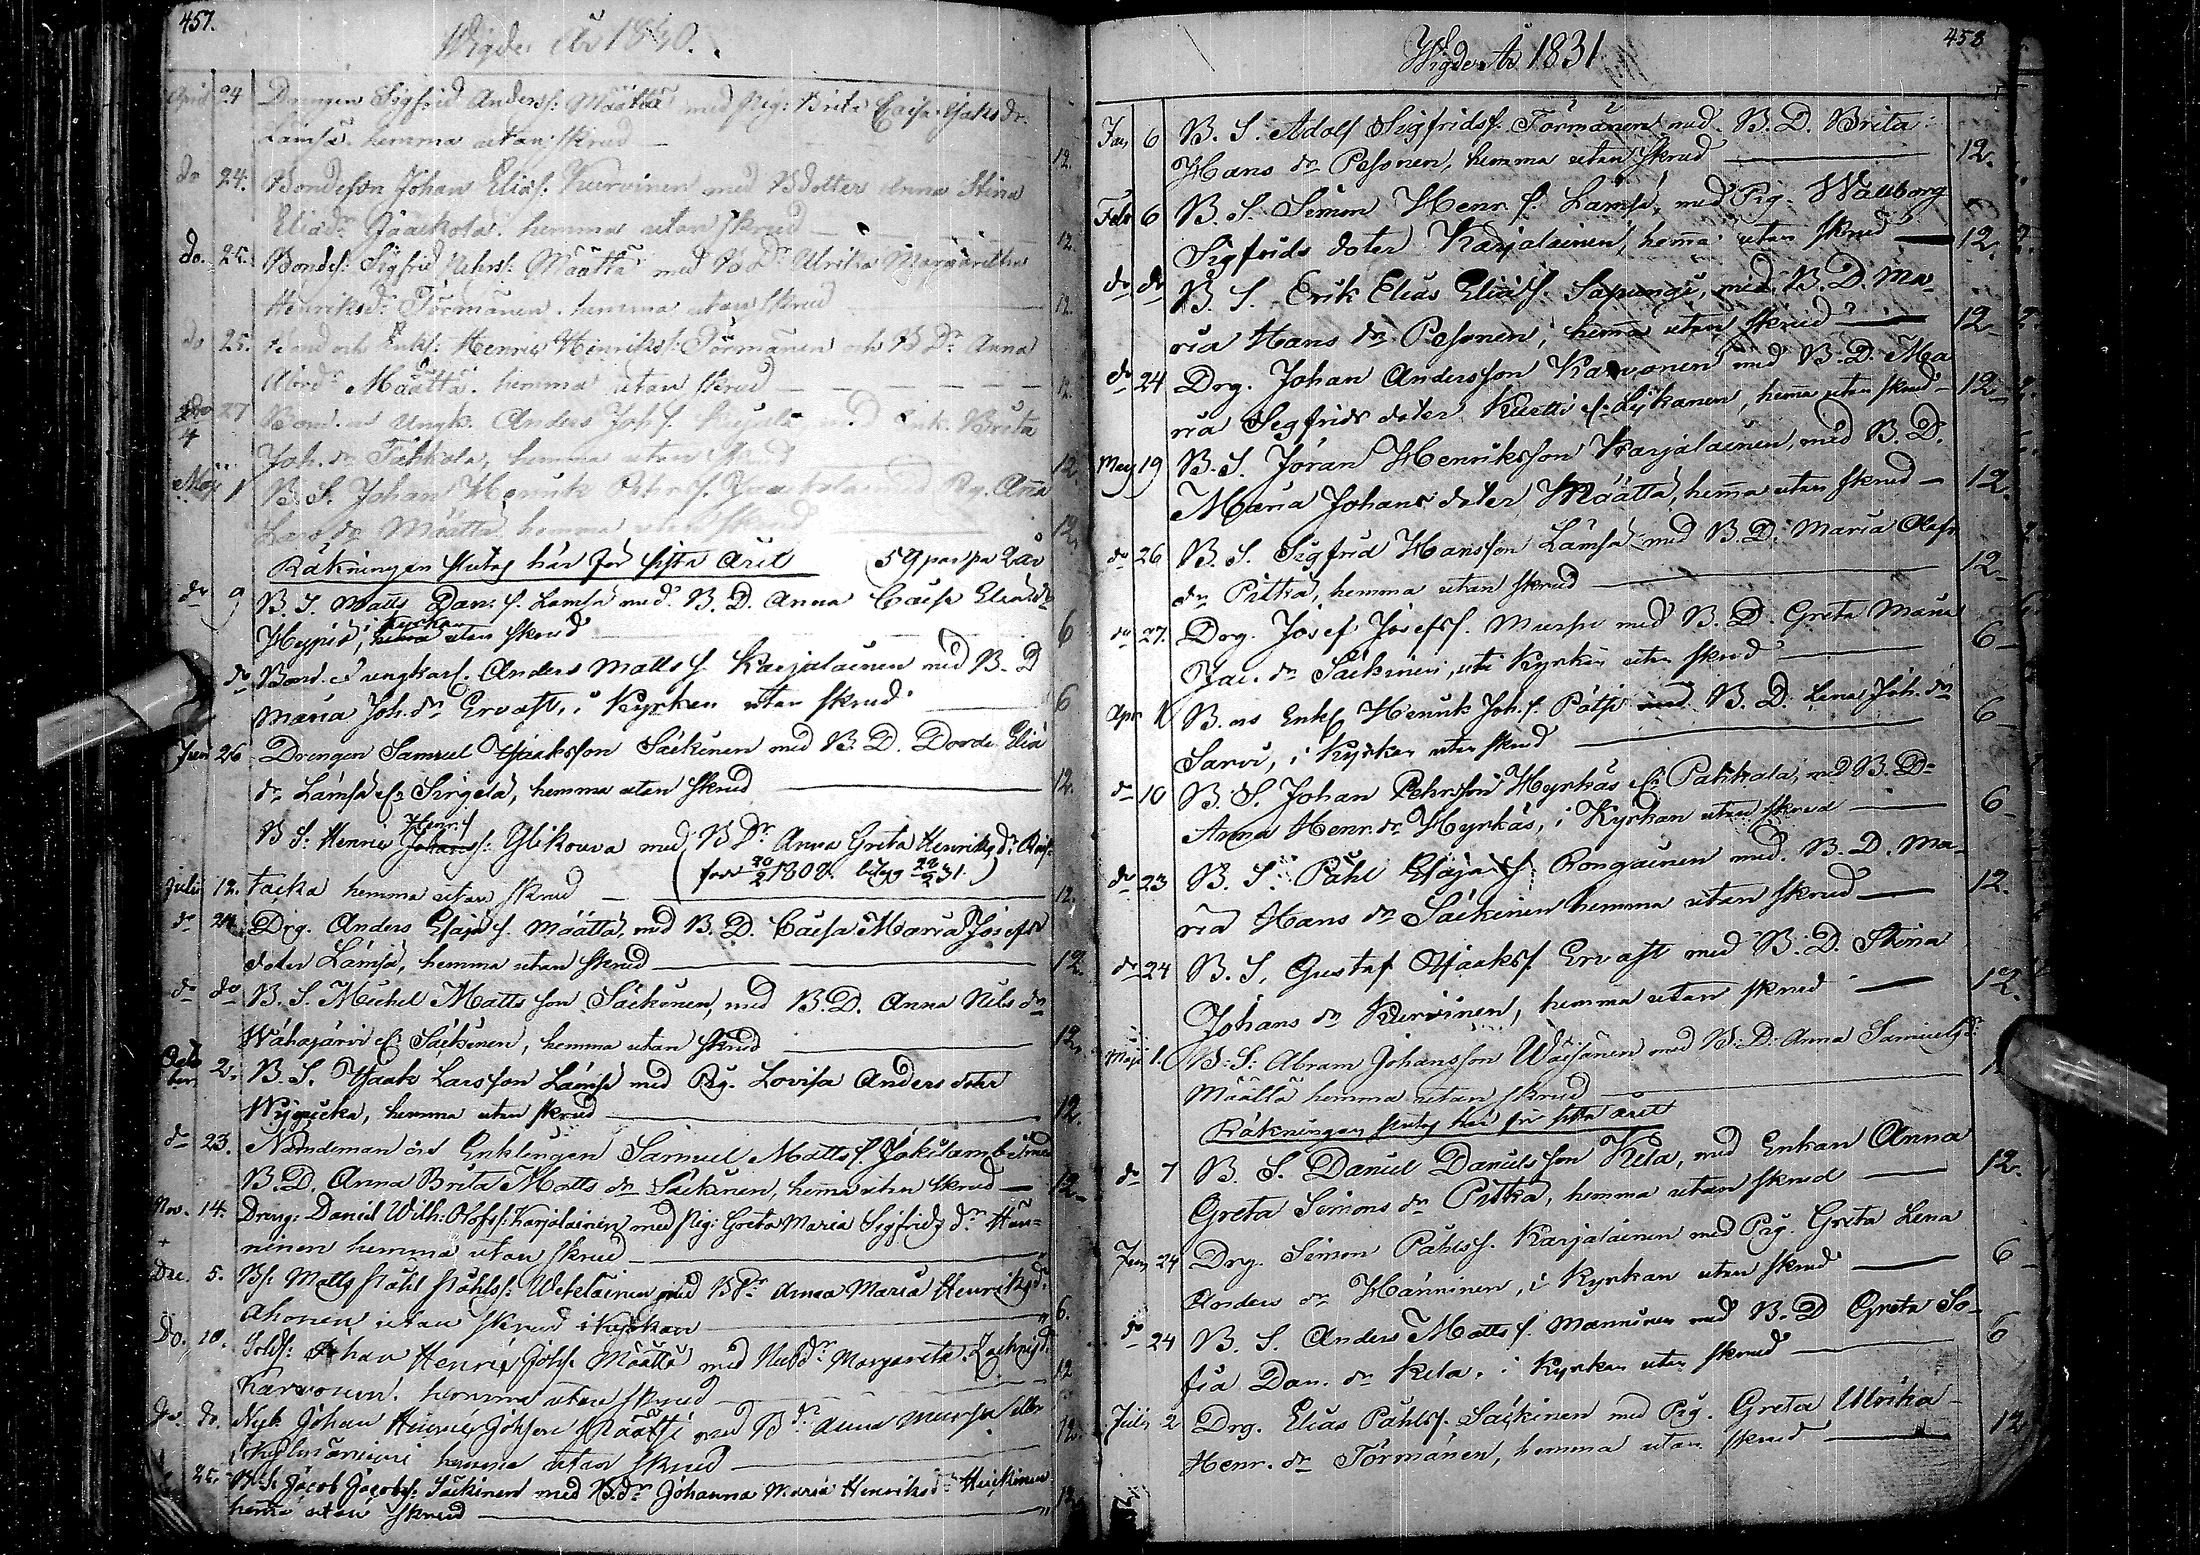 457.
Wigde År 1830.
April 24 Drengen Sigfrid Anders s: Määttä med Pig: Brita Caisa Isaks dr
Lämsä hemma utan skrud 12.
do 24. Bondeson Johan Elias s. Kurvinen med Bdotter Anna Stina
Elias dr Jaakola. hemma utan skrud 12.
do. 25. Bondes: Sigfrid Pehrs s: Määttä med Bdr Ulrika Margaretha
Henriks dr Törmänen. hemma utan skrud 12.
do 25. Bond och Enkl: Henric Henriks s: Törmänen och B Dr Anna
Määttä. hemma utan skrud 12.
do 27 Bond. Ungk. Anders Joh s. med Enk. Brita
Joh. dr Takkala, hemma utan skrud 12.
Maj 1 B. S. Johan Henrik Pehrs s. Jaakola med Pig. Anna
Lars dr Määttä hemma utan skrud 12.
Räkningen slutas här för sista året 59 par på 2 år
do 9 B. S. Matts Dan. s. Lämsä med B. D. Anna Caisa Elias dr
Hyppiö, i kyrkan hema utan skrud 6
do Bond. ungkarl. Anders Matts s. Karjalainen med B. D
Maria Joh. dr Ervast, i Kyrkan utan skrud 6
Jun 26 Drengen Samuel Isaksson Säckinen med B. D. Dorde Elia
dr Lämsä el. Sirgelä, hemma utan skrud 12.
B S: Henric Henr. s Johans s: Ylikouva med B Dr Anna Greta Henriks dr Rais-
född 20/2 1808. betyg 22/2 31.
Julii 12. tacka hemma utan skrud 12.
do 24 Drg. Anders Esaja s. Määttä, med B. D. Caisa Maria Josefs
doter Lämsä, hemma utan skrud 12.
do do B. S. Michel Mattsson Säckinen, med B. D. Anna Nils dr
Wähäjärvi el. Säckinen, hemma utan skrud 12.
Octobern 2. B. S. Isaak Larsson Lämsä med Pig. Lovisa Anders doter
hemma utan skrud 12.
do 23. Nämdeman ocs Enklingen Samuel Matts s. Jokilambi med
B. D. Anna Brita Matts dr Säckinen, hema utan skrud 12
Nov. 14. Dreng: Daniel Wilh: Olofs s: Karjalainen med Pig: Greta Maria Sigfrids dr Hän-
ninen hemma utan skrud
Dec. 5. Bs: Matts Påhl Påhls s: Wetelainen med B Dr Anna Maria Henriks dr
Ahonen utan skrud i kyrkan 6.
Do. 10. Solds: Johan Henric Johs. Määttä med Dr Margareta Zachris dr
Karvonen. hemma utan skrud 12
do. do. Johan Henric Johsson Määttä med B dr Anna Mursu eller
hemma utan skrud 12.
25. B S: Jacob Jacobs s: Säckinen med B. dr Johanna Maria Henriks dr Heickinen
hema utan skrud 12
458
Wigde År 1831
Jan 6 B. S. Adolf Sigfrids s. Törmänen med B. D. Brita
Hans dr Pesonen, hemma utan skrud 12.
Febr 6 B. S. Simon Henr. s. Lämsä, med Pig. Wallborg
Sigfrids doter Karjalainen, hema utan skrud 12.
do do B. S. Erik Elias Elias s. Sapungi, med B. D. Ma-
ria Hans dr Pesonen, hema utan skrud 12
do 24 Drg. Johan Andersson Karvonen med B. D. Ma
ria Sigfrids doter Kuetti el. Lykanen, hema utan skrud 12
Mars 19 B. S. Jöran Henriksson Karjalainen, med B. D.
Maria Johans doter Määttä, hema utan skrud 12.
do 26 B. S. Sigfrid Hansson Lämsä med B. D. Maria Olofs
dr Pitkä, hemma utan skrud 12
do 27. Drg. Josef Josefs s. Mursu med B. D. Greta Maria
Jac. dr Säckinen, uti Kyrkan utan skrud 6
Apr B. ocs Enkl Henrik Joh. s. Pätsi med B. D. Lena Joh. dr
Sarvi, i Kyrkan utan skrud 6
do 10 B. S. Johan Pehrsson Hyrkäs el. Pakkala, med B. D.
Anna Henr. dr Hyrkäs, i Kyrkan utan skrud 6
do 23 B. S. Påhl Esaja s. Rongainen med B. D. Ma-
ria Hans dr Säckinen hemma utan skrud 12.
do 24 B. S. Gustaf Isaaks s. Ervast med B. D. Stina
Johans dr Kurvinen, hemma utan skrud 12.
Maji 1. B: S: Abram Johansson Wäisänen med B: D: Anna Samuels dr
Määttä hemma utan skrud
Räkningen slutas här för sista året
do 7 B. S. Daniel Danielsson Kela, med Enkan Anna
Greta Simons dr Pitkä, hemma utan skrud 12.
Jun 24 Drg. Simon Påhls s. Karjalainen med Pig. Greta Lena
Anders dr Hänninen, i Kyrkan utan skrud 6
do 24 B. S. Anders Matts s. Manninen med B. D Greta So-
fia Dan. dr Kela. i Kyrkan utan skrud 6
Julii 2 Drg. Elias Påhls s. Säckinen med Pig. Greta Ulrika
Henr. dr Törmänen, hemma utan skrud 12